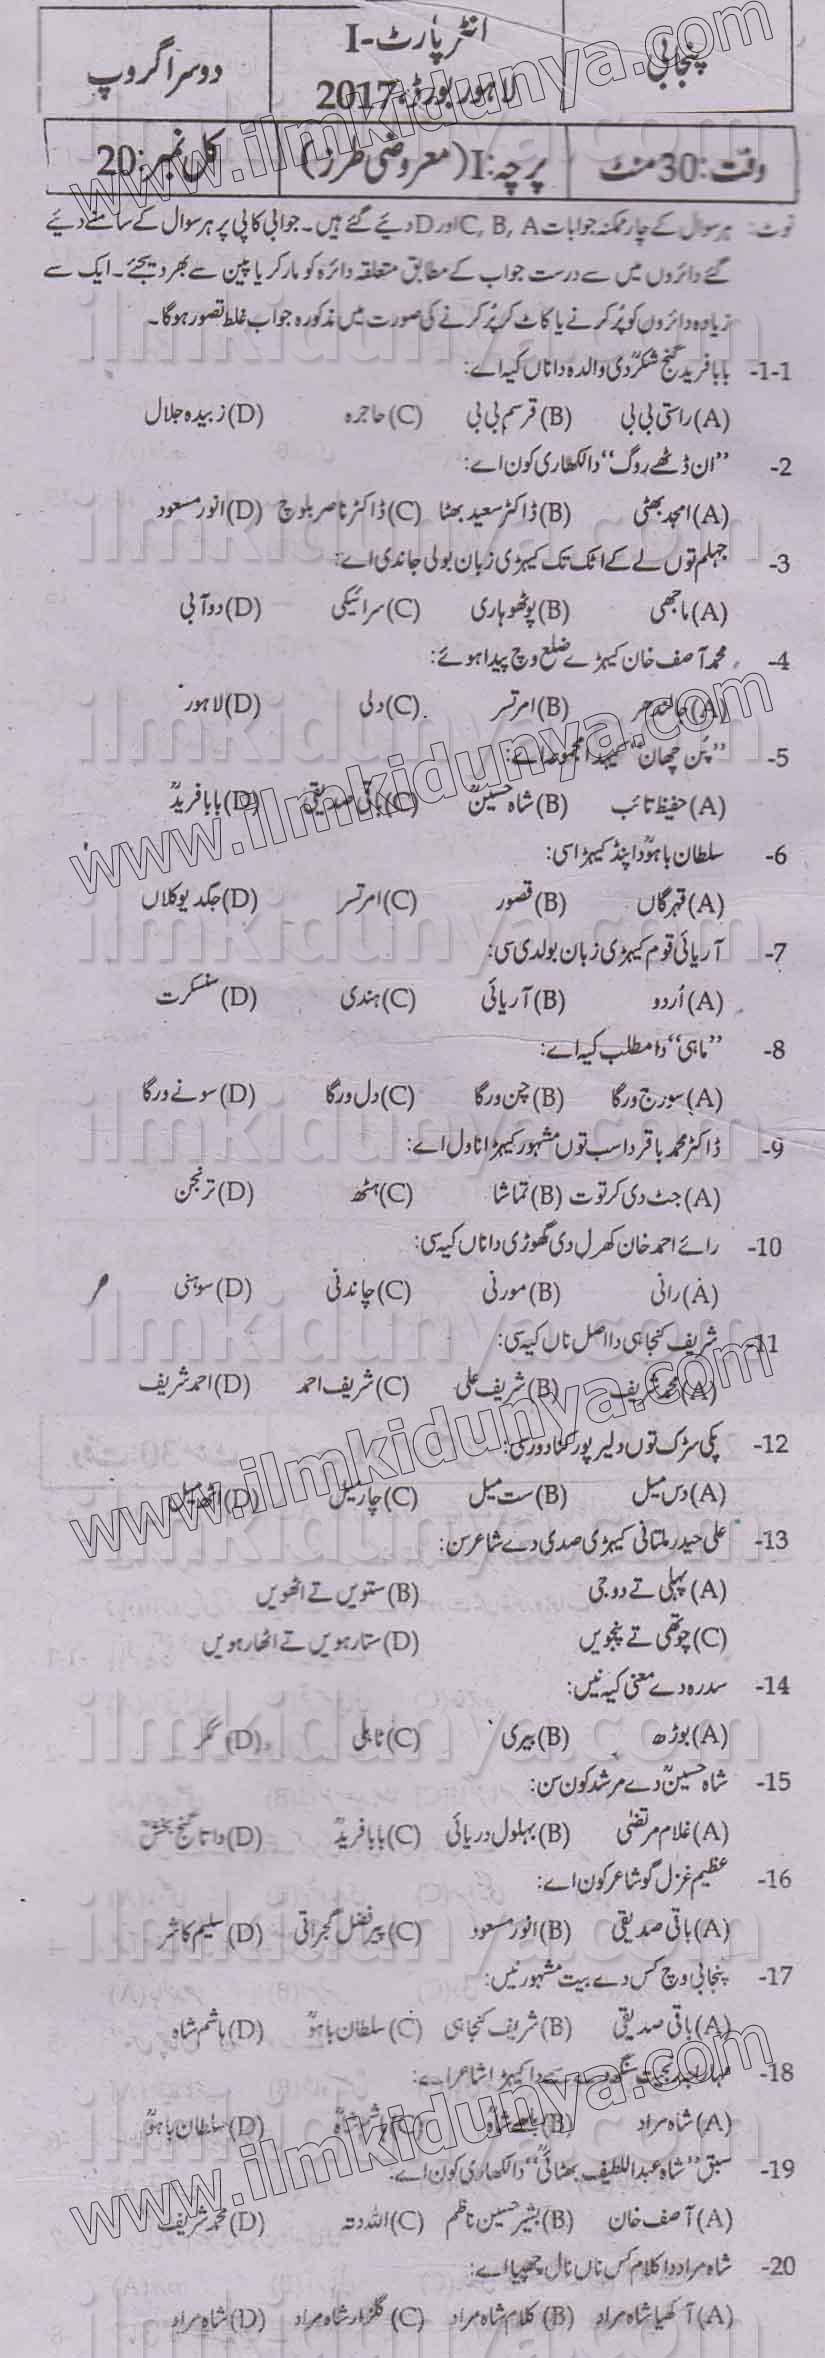 پنجابی
انٹر پارٹ-I
لاہور بورڈ، 2017
دوسرا گروپ
وقت: 30 منٹ
پرچہ: I (معروضی طرز)
کل نمبر: 20
نوٹ: ہر سوال کے چار ممکنہ جوابات A، B، C اور D دیئے گئے ہیں۔ جوابی کاپی پر ہر سوال کے سامنے دیئے
گئے دائروں میں سے درست جواب کے مطابق متعلقہ دائرہ کو مارکر یا پین سے بھر دیجئے۔ ایک سے
زیادہ دائروں کو پُر کرنے یا کاٹ کر پُر کرنے کی صورت میں مذکورہ جواب غلط تصور ہوگا۔
1-1- بابا فرید گنج شکرؒ دی والدہ دا ناں کیہ اے:
(A) راستی بی بی (B) قرسم بی بی (C) حاجرہ (D) زبیدہ جلال
2- ”ان ڈٹھے روگ“ دا لکھاری کون اے:
(A) امجد بھٹی (B) ڈاکٹر سعید بھٹا (C) ڈاکٹر ناصر بلوچ (D) انور مسعود
3- جہلم توں لے کے اٹک تک کیہڑی زبان بولی جاندی اے:
(A) ماجھی (B) پوٹھوہاری (C) سرائیکی (D) دوآبی
4- محمد آصف خان کیہڑے ضلع وچ پیدا ہوئے:
(A) جالندھر (B) امرتسر (C) دلی (D) لاہور
5- ”پُن چھان“ کیہدا مجموعہ اے:
(A) حفیظ تائب (B) شاہ حسینؒ (C) باقی صدیقی (D) بابا فریدؒ
6- سلطان باہوؒ دا پنڈ کیہڑا سی:
(A) قہرگاں (B) قصور (C) امرتسر (D) جگدیو کلاں
7- آریائی قوم کیہڑی زبان بولدی سی:
(A) اُردو (B) آریائی (C) ہندی (D) سنسکرت
8- ”ماہی“ دا مطلب کیہ اے:
(A) سورج ورگا (B) چن ورگا (C) دل ورگا (D) سونے ورگا
9- ڈاکٹر محمد باقر دا سب توں مشہور کیہڑا ناول اے:
(A) جٹ دی کرتوت (B) تماشا (C) ہٹھ (D) ترنجن
10- رائے احمد خان کھرل دی گھوڑی دا ناں کیہ سی:
(A) رانی (B) مورنی (C) چاندنی (D) سوہنی
11- شریف کنجاہی دا اصل ناں کیہ سی:
(A) محمد شریف (B) شریف علی (C) شریف احمد (D) احمد شریف
12- پکی سڑک توں دلیر پور کنا دور سی:
(A) دس میل (B) ست میل (C) چار میل (D) اٹھ میل
13- علی حیدر ملتانی کیہڑی صدی دے شاعر سن:
(A) پہلی تے دوجی (B) ستویں تے اٹھویں
(C) چوتھی تے پنجویں (D) ستارہویں تے اٹھارہویں
14- سدرہ دے معنی کیہ نیں:
(A) بوڑھ (B) بیری (C) ٹاہلی (D) ککر
15- شاہ حسینؒ دے مرشد کون سن:
(A) غلام مرتضیٰ (B) بہلول دریائی (C) بابا فریدؒ (D) داتا گنج بخشؒ
16- عظیم غزل گو شاعر کون اے:
(A) باقی صدیقی (B) انور مسعود (C) پیر فضل گجراتی (D) سلیم کاشر
17- پنجابی وچ کس دے بیت مشہور نیں:
(A) باقی صدیقی (B) شریف کنجاہی (C) سلطان باہوؒ (D) ہاشم شاہ
18- مہاراجہ رنجیت سنگھ دے سمے دا کیہڑا شاعر اے:
(A) شاہ مراد (B) بلھے شاہؒ (C) ہاشم شاہ (D) سلطان باہوؒ
19- سبق ”شاہ عبداللطیف بھٹائیؒ“ دا لکھاری کون اے:
(A) آصف خان (B) بشیر حسین ناظم (C) اللہ دتہ (D) محمد شریف
20- شاہ مراد دا کلام کس ناں نال چھپیا اے:
(A) آکھیا شاہ مراد (B) کلام شاہ مراد (C) گلزار شاہ مراد (D) شاہ مراد
www.ilmkidunya.com
ilmkidunya.com